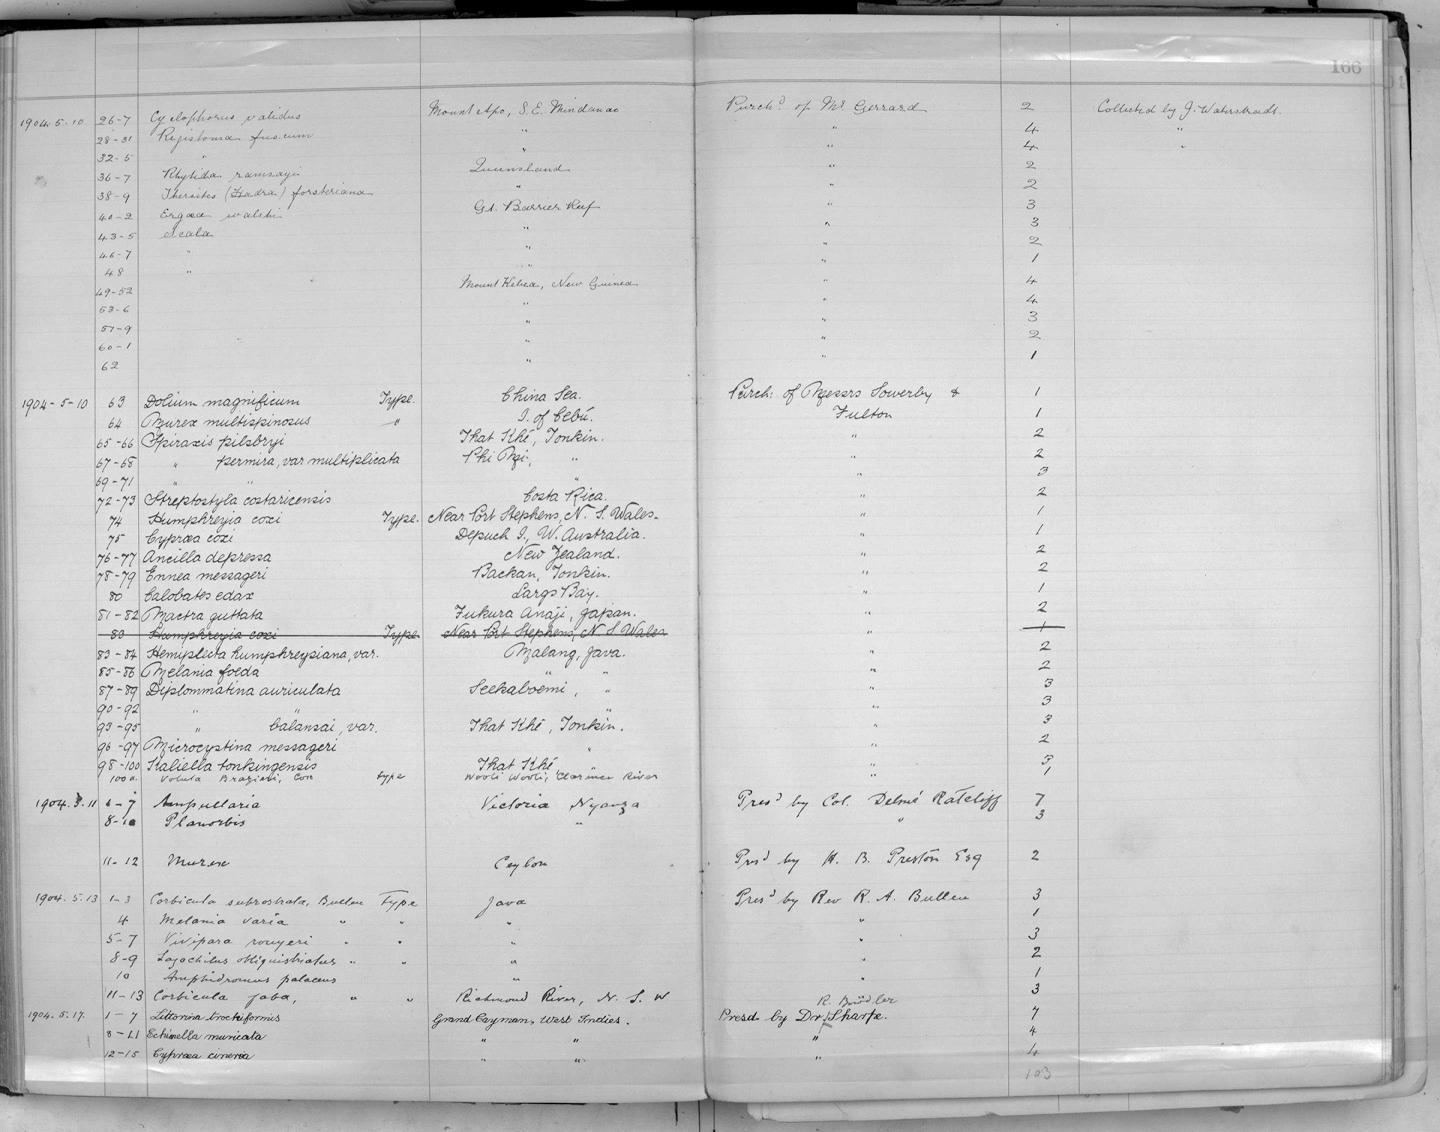 166
1904.5.10 26-7 Cyclophorus validus Mount Apo, S.E. Mindanao Purchd of Mr Gerrard 2 Collected by J. Waterstradt.
28-31 Registoma fuscum " " 4 "
32-5 " " " 4 "
36-7 Rhytida ramsayi Queensland " 2
38-9 Thersites (Hadra) forsteriana " " 2
40-2 Ergæa walshi Gt. Barrier Reef " 3
43-5 Scala " " 3
46-7 " " " 2
48 " " " 1
49-52 Mount Kebea, New Guinea " 4
53-6 " " 4
57-9 " " 3
60-1 " " 2
62 " " 1
1904-5-10 63 Dolium magnificum Type. China Sea. Purch: of Messrs Sowerby & 1
64 Murex multispinosus " I. of Cebú. Fulton 1
65-66 Spiraxis pilsbryi That Khé, Tonkin. " 2
67-68 " permira, var multiplicata Phi Mi, " " 2
69-71 " " " 3
72-73 Streptostyla costaricensis Costa Rica. " 2
74 Humphreyia coxi Type. Near Port Stephens, N. S. Wales. " 1
75 Cypræa coxi Depuch I., W. Australia. " 1
76-77 Ancilla depressa New Zealand. " 2
78-79 Ennea messageri Backan, Tonkin. " 2
80 Calobates edax Largs Bay. " 1
81-82 Mactra guttata Fukura Anaji, Japan. " 2
83 Humphreyia coxi Type. Near Port Stephens, N S Wales " 1
83-84 Hemiplecta humphreysiana, var. Malang, Java. " 2
85-86 Melania foeda " " " 2
87-89 Diplommatina auriculata Seekaboemi, " " 3
90-92 " " " " 3
93-95 " balansai, var. That Khé, Tonkin. " 3
96-97 Microcystina messageri " " 2
98-100 Kaliella tonkingensis That Khé " " 3
100a. Voluta Brazieri, Cox type Wooli Wooli, Clarence River " 1
1904.5.11 1-7 Ampullaria Victoria Nyanza Presd by Col. Delmé Ratcliff 7
8-10 Planorbis " " 3
11-12 Murex Ceylon Presd by H. B. Preston Esq 2
1904.5.13 1-3 Corbicula subrostrata, Bullen Type Java Presd by Rev R. A. Bullen 3
4 Melania varia " " " " 1
5-7 Vivipara rouyeri " " " " 3
8-9 Lagochilus obliquistriatus " " " " 2
10 Amphidromus palaceus " " 1
11-13 Corbicula faba, " " Richmond River, N. S. W 3
R. Bowdler
1904.5.17. 1-7 Littorina trochiformis Grand Cayman, West Indies. Presd by Dr Sharpe. 7
8-11 Echinella muricata " " " 4
12-15 Cypræa cinerea " " " 4
103